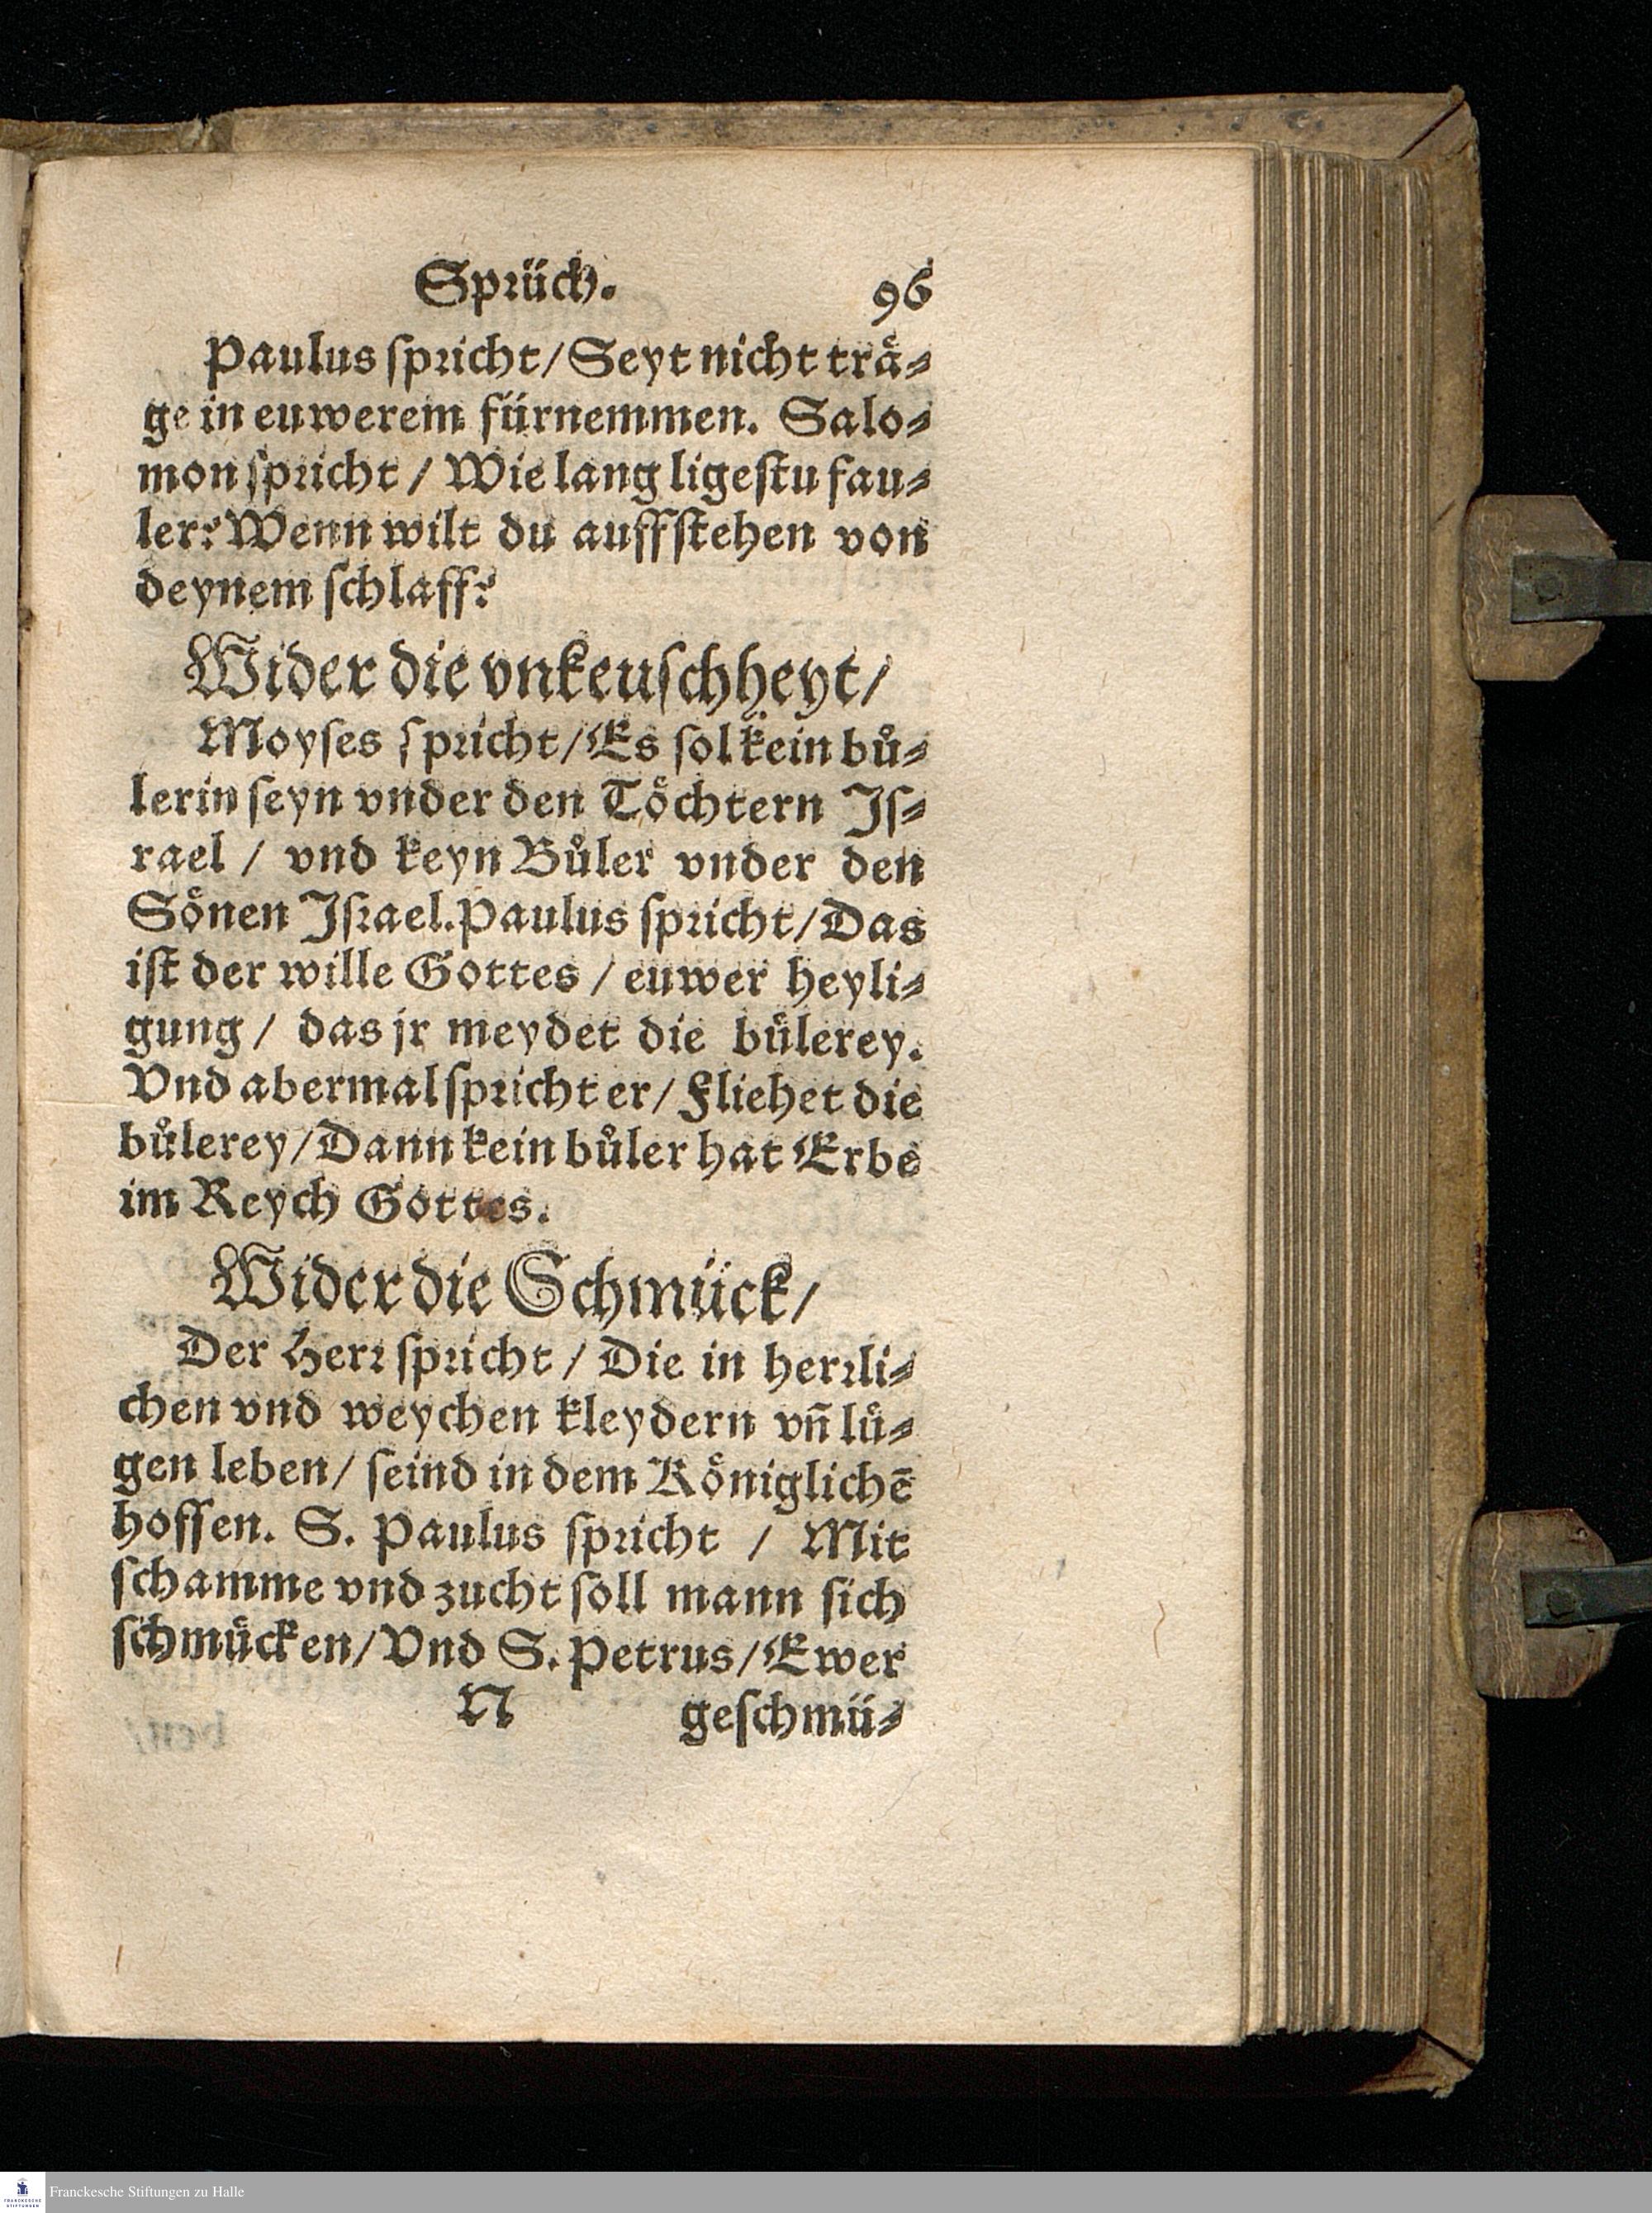 Sprüch. 96
Paulus ſpricht/ Seyt nicht traͤ⸗
ge in euwerem fürnemmen. Salo⸗
mon ſpricht / Wie lang ligeſtu fau⸗
ler? Wenn wilt du auffſtehen von
deynem ſchlaff?
Wider die vnkeuſchheyt/
Moyſes ſpricht/ Es ſol kein buͤ⸗
lerin ſeyn vnder den Toͤchtern Iſ⸗
rael / vnd keyn Buͤler vnder den
Soͤnen Iſrael. Paulus ſpricht/ Das
iſt der wille Gottes / euwer heyli⸗
gung / das jr meydet die buͤlerey.
Vnd abermal ſpricht er/ Fliehet die
buͤlerey/ Dann kein buͤler hat Erbe
im Reych Gottes.
Wider die Schmück/
Der Herr ſpricht / Die in herrli⸗
chen vnd weychen kleydern vn̄ luͤ⸗
gen leben/ ſeind in dem Koͤnigliche̅
hoffen. S. Paulus ſpricht / Mit
ſchamme vnd zucht ſoll mann ſich
ſchmuͤcken/ Vnd S. Petrus/ Ewer
N geſchmü⸗
Franckesche Stiftungen zu Halle
FRANCKESCHE
STIFTUNGEN